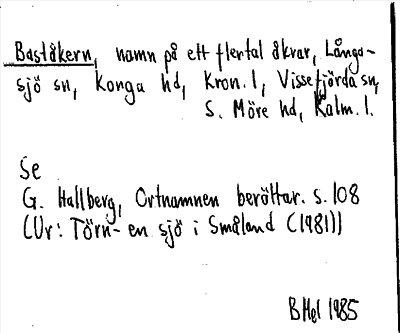 Baståkern, namn på ett flertal åkrar, Långa-
sjö sn, Konga hd, Kron. l, Vissefjärda sn,
S. Möre hd, Kalm. l.
Se
G. Hallberg, Ortnamnen berättar. s. 108
(Ur: Törn- en sjö i Småland (1981))
BHel 1985